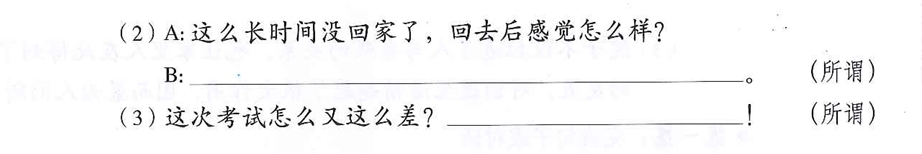 (2) A: 这么长时间没回家了，回去后感觉怎么样？
B: ____________________。 (所谓)
(3) 这次考试怎么又这么差？____________________! (所谓)